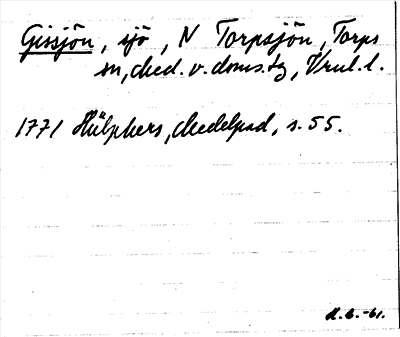 Gissjön, sjö, N Torpsjön, Torps
sn, Med. v. doms. tg, Vnul. l.
1771 Hülphers, Medelpad, s. 55.